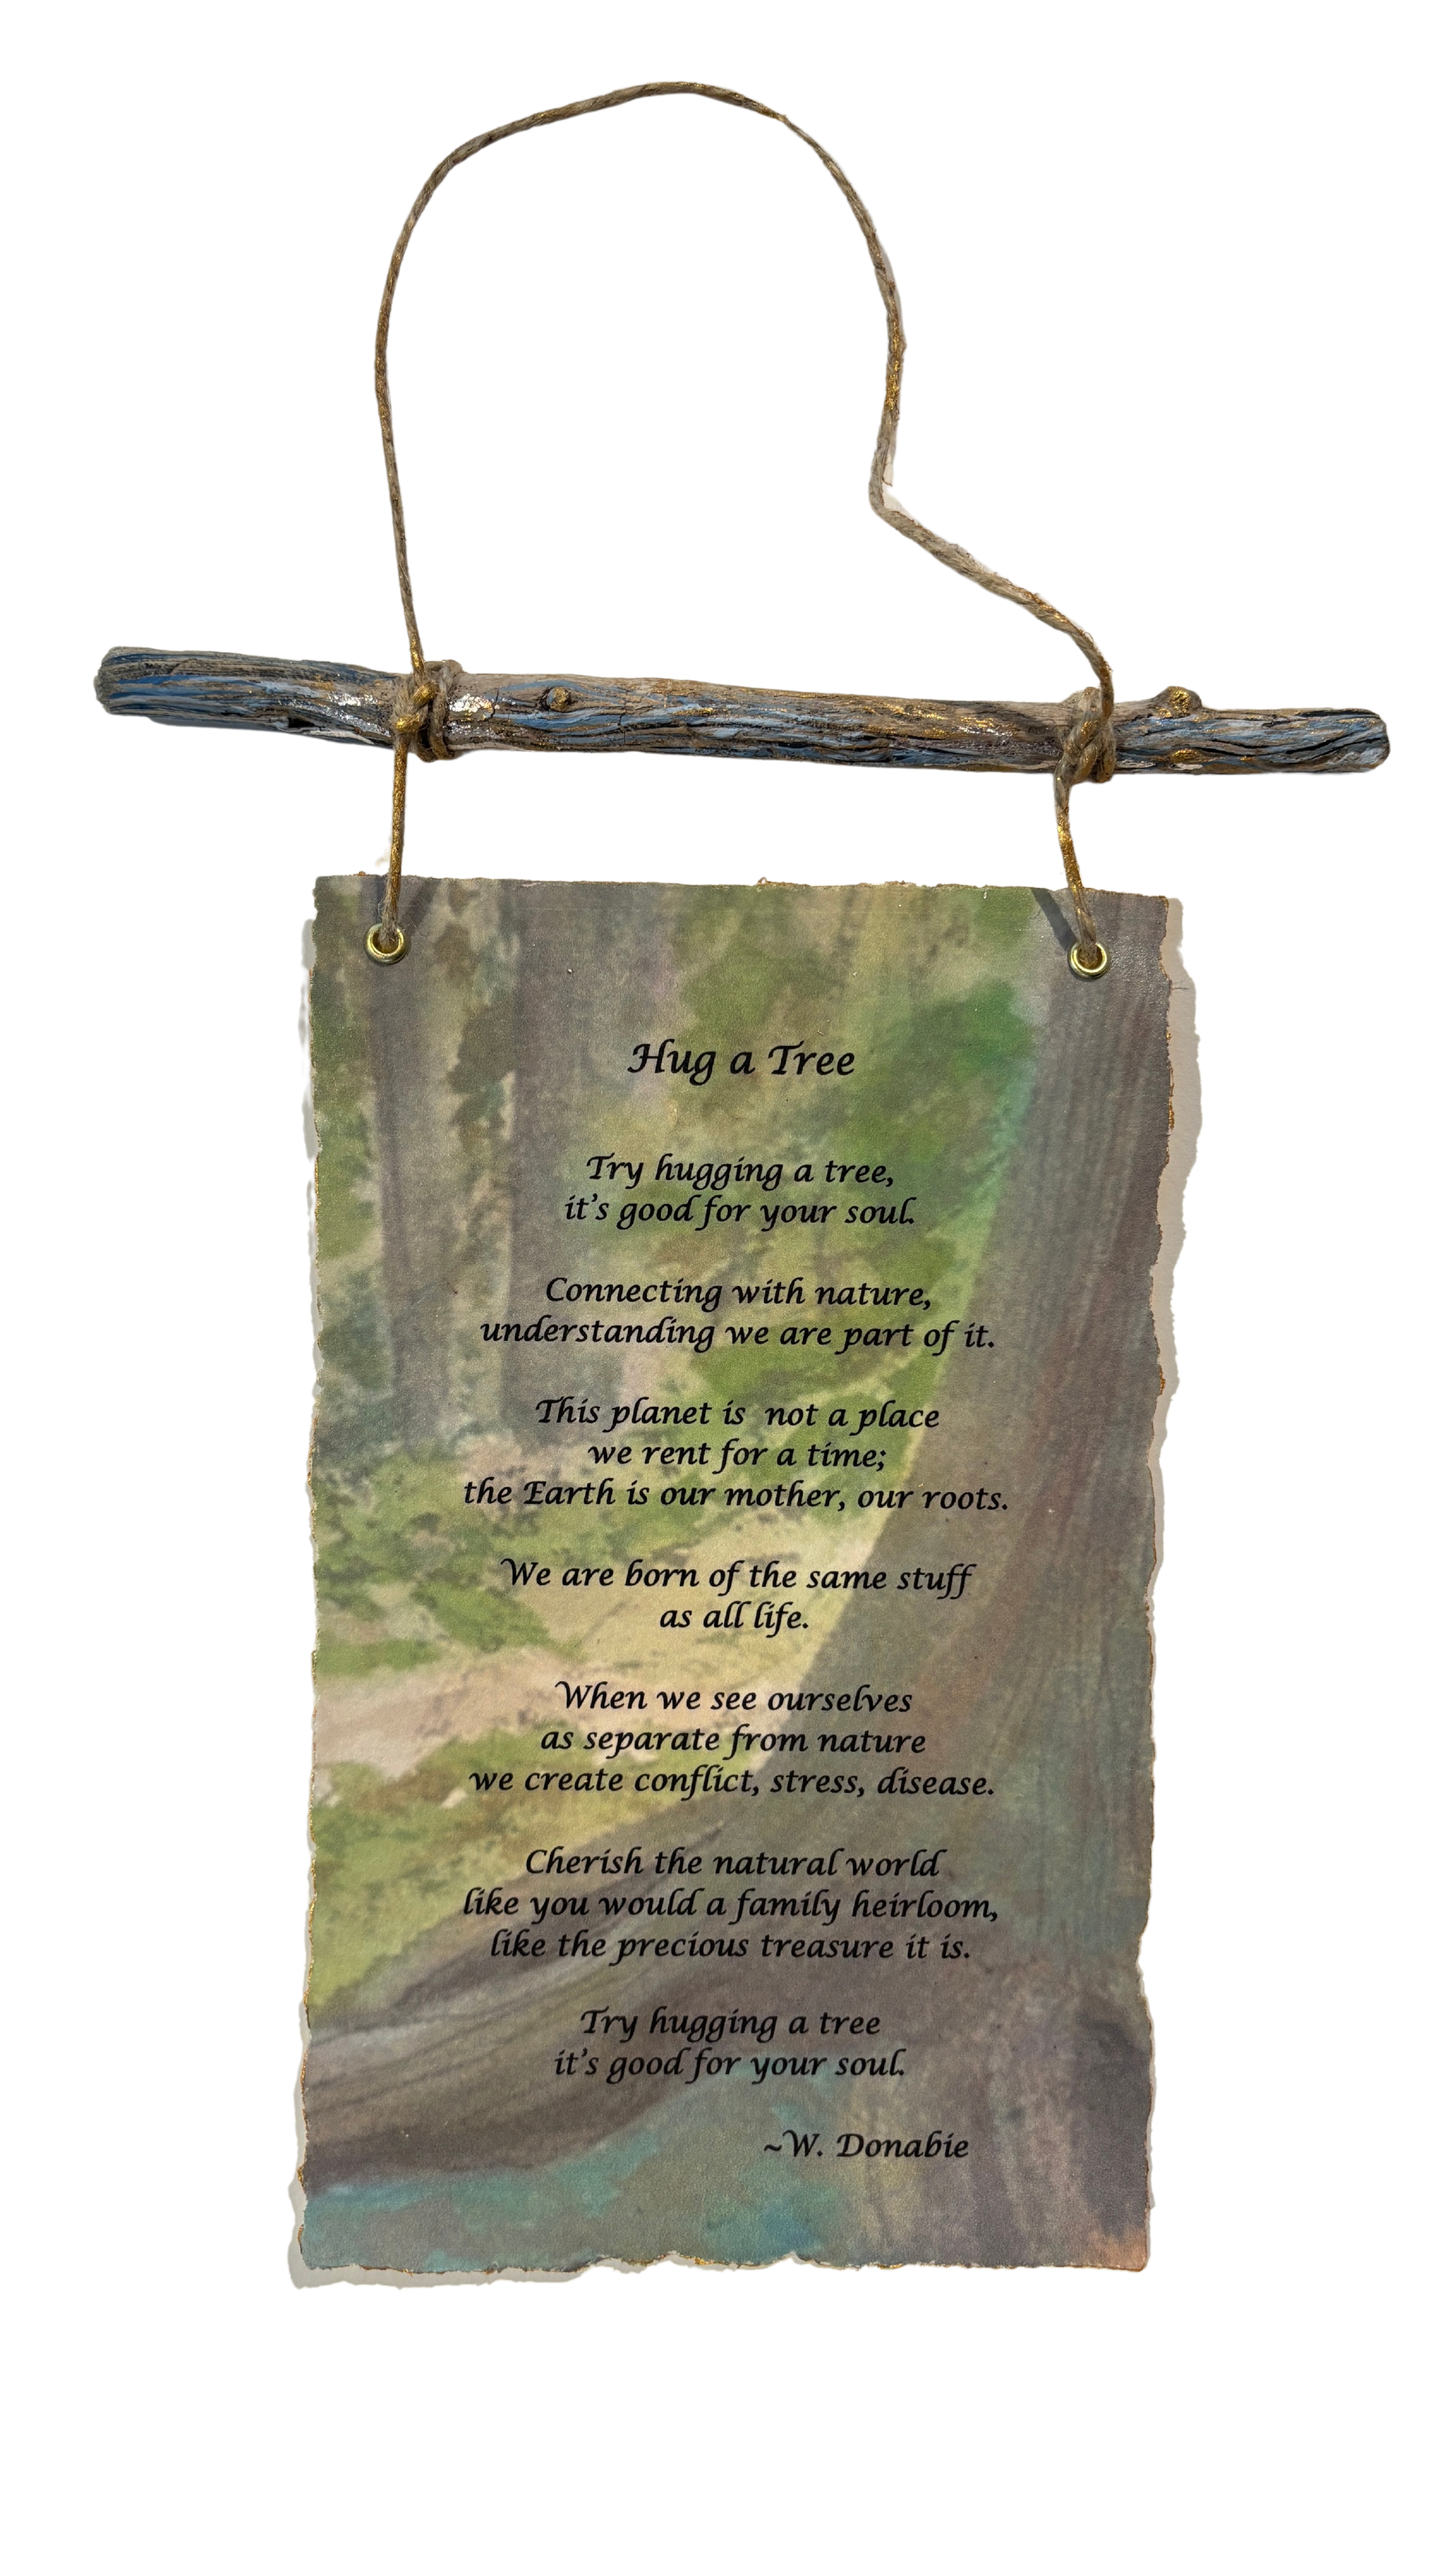 Hug a Tree
Try hugging a tree,
it's good for your soul.
Connecting with nature,
understanding we are part of it.
This planet is  not a place
we rent for a time;
the Earth is our mother, our roots.
We are born of the same stuff
as all life.
When we see ourselves
as separate from nature
we create conflict, stress, disease.
Cherish the natural world
like you would a family heirloom,
like the precious treasure it is.
Try hugging a tree
it's good for your soul.
~W. Donabie